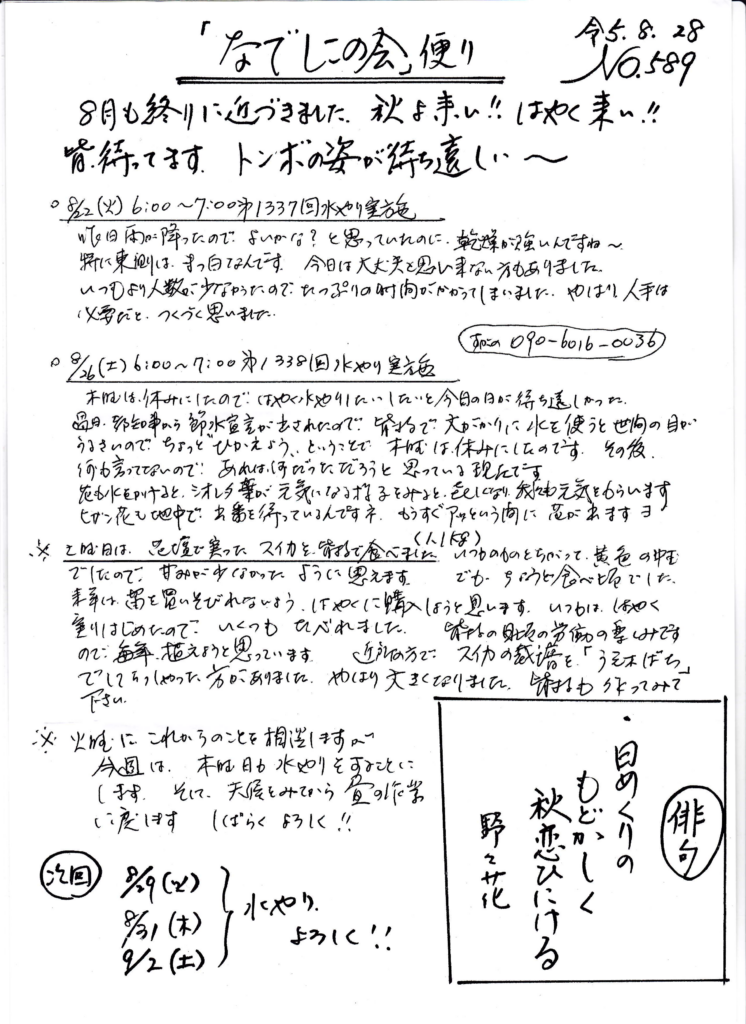 「なでしこの会」便り
令5.8.28
NO.589
8月も終りに近づきました。秋よ来い!!はやく来い!!
皆、待ってます。トンボの姿が待ち遠しい〜
○8/22(火)6:00〜7:00第1337回水やり実施
昨日雨が降ったので、よいかな?と思っていたのに、乾燥が強いんですね〜
特に東側は、まっ白なんです。今日は大丈夫と思い来ない方もありました。
いつもより人数が少なかったので、たっぷりの時間がかかってしまいました。やはり、人手は
必要だと、つくづく思いました。
090-6016-0036
○8/26(土)6:00〜7:00第1338回水やり実施
木曜は、休みにしたので、はやく水やりしたいしたいと今日の日が待ち遠しかった。
節水宣言が出されたので、皆さまで大がかりに水を使うと世間の目が
うるさいので、ちょっとひかえよう、ということで、木曜は休みにしたのです。その後、
何も言ってないので、あれは何だったんだろうと思っている現在です
花も水をかけると、シオレタ葉が元気になる様子をみると、もらいます
ヒガン花も地中で、出番を待っているんですネ。もうすぐアッという間に芽が出ますヨ
※土曜日は、花壇で実ったスイカを皆さまで食べました(人15名)いつものものとちがって、黄色の中玉
でしたので、甘みが少なかったように思えます。でも、ちょうど食べ頃でした。
来年は、苗を買いそびれないよう、はやくに購入しようと思います。いつもは、はやく
売りはじめたので、いくつもたべれました。皆さまの労働の
ので、毎年、植えようと思っています。近所の方で、スイカの「うえ木ばち」
でしてらっしゃった方がありました。やはり大きくなりました。皆さまも作ってみて
下さい。
※火曜にこれからのことを相談しますが
今週は、木曜日も水やりをすることに
します。そして、天候をみてから昼の作業
に戻します しばらくよろしく!!
俳句
・日めくりの
もどかしく
秋恋ひにける
野々花
次回
8/29(火)
8/31(木)
9/2(土)
水やり、
よろしく!!